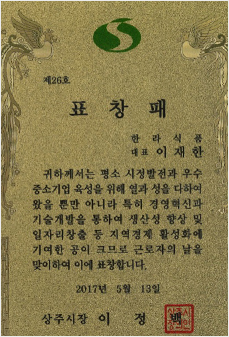 제26호
표 창 패
한 라 식 품
대표 이 재 한
귀하께서는 평소 시정발전과 우수
중소기업 육성을 위해 열과 성을 다하여
왔을 뿐만 아니라 특히 경영혁신과
기술개발을 통하여 생산성 향상 및
일자리창출 등 지역경제 활성화에
기여한 공이 크므로 근로자의 날을
맞이하여 이에 표창합니다.
2017년 5월 13일
상주시장 이 정 백